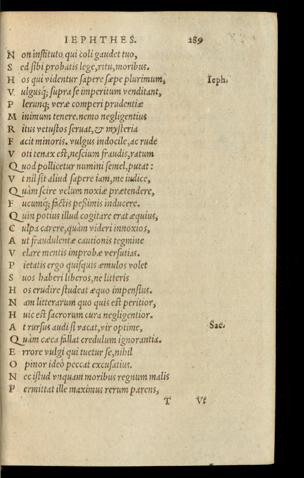 IEPHTHES. 289
N on instituto, qui coli gaudet tuo,
S ed sibi probatis lege, ritu, moribus.
H os qui videntur sapere sæpe plurimum, Ieph.
V ulgusq; supra se imperitum venditant,
P lerunq; veræ comperi prudentiæ
M inimum tenere. nemo negligentius
R itus vetustos seruat, & mysteria
F acit minoris. vulgus indocile, ac rude
V oti tenax est, nescium fraudis, ratum
Q uod pollicetur numini semel, putat:
V t nil sit aliud sapere iam, me iudice,
Q uàm scire velum noxiæ prætendere,
F ucumq; factis pessimis inducere.
Q uin potius illud cogitare erat æquius,
C ulpa carere, quàm videri innoxios,
A ut fraudulentæ cautionis tegmine
V elare mentis improbæ versutias.
P ietatis ergo quisquis æmulos volet
S uos haberi liberos, ne litteris
H os erudire studeat æquo impensius.
N am litterarum quo quis est peritior,
H uic est sacrorum cura negligentior.
A t rursus audi si vacat, vir optime, Sac.
Q uàm cæca fallat credulum ignorantia.
E rrore vulgi qui tuetur se, nihil
O pinor ideo peccat excusatius.
N ec istud vnquam moribus regnum malis
P ermittat ille maximus rerum parens,
T Vt